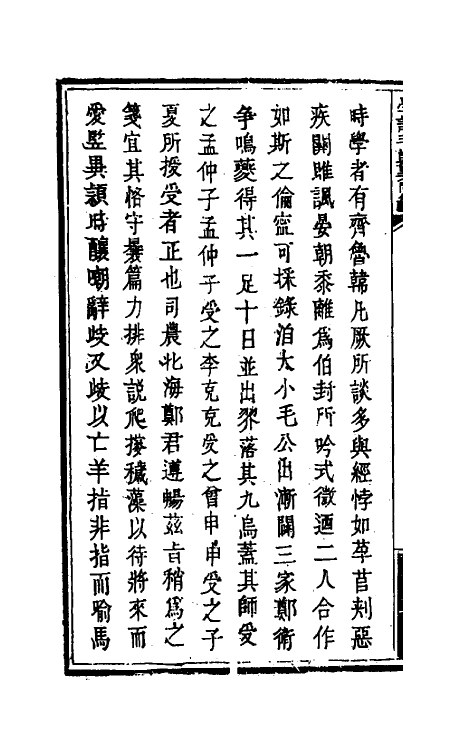 時學者有齊魯韓凡厥所談多與經悖如芣苢刺惡
疾關雎諷晏朝黍離爲伯封所吟式微迺二人合作
如斯之倫寍可採錄洎大小毛公出漸闢三家鄭衛
争鳴夔得其一足十日並出羿落其九烏蓋其師受
之孟仲子孟仲子受之李克克受之曾申申受之子
夏所授受者正也司農北海鄭君遵暢茲㫖稍爲之
箋宜其恪守曩篇力排衆説爬摟穢藻以待將來而
愛監異讀時釀嘲辭歧又歧以亡羊指非指而喻馬